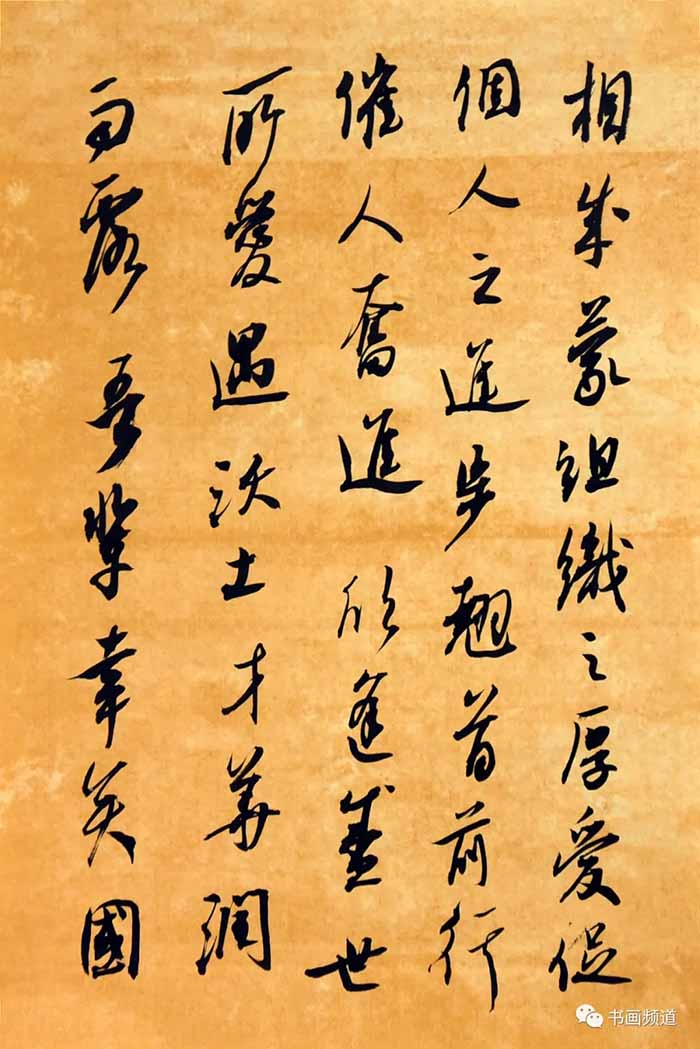 相成蒙組織之厚愛促
個人之進步翹首前行
催人奮進欣逢盛世
所愛遇沃土才華潤
雨露吾輩幸矣國
书画频道